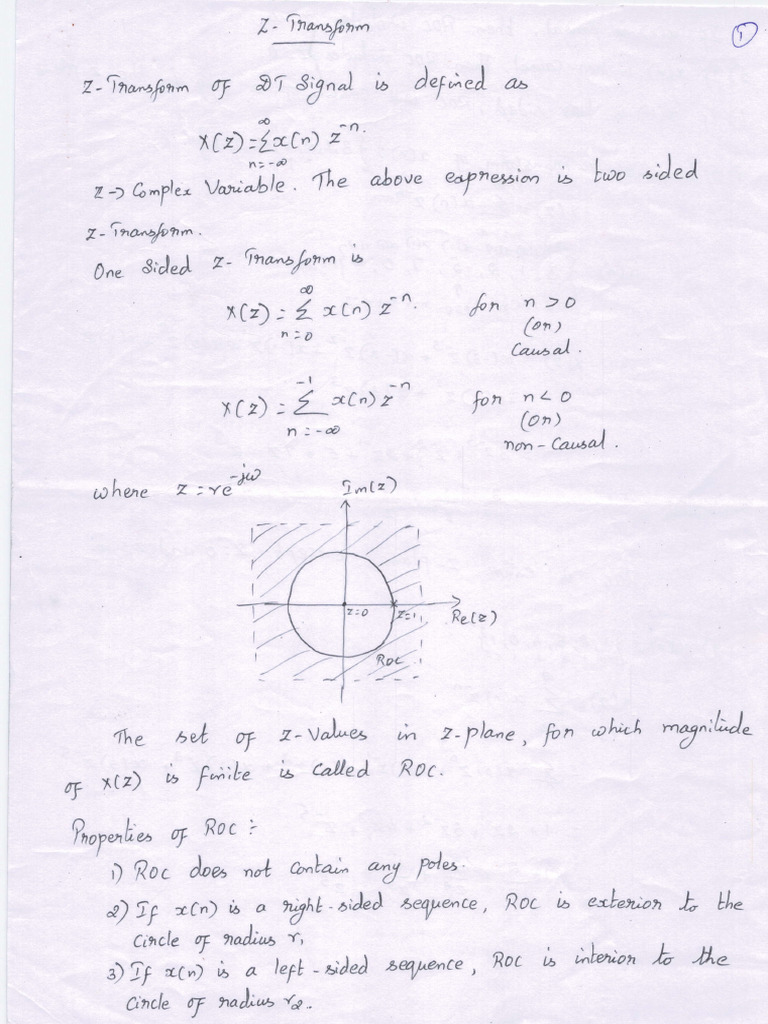 Z-Transform
1
Z-Transform of DT Signal is defined as
X(z) = ∞Σn=-∞ x(n) z^-n.
Z → Complex Variable. The above expression is two sided
Z-Transform.
One Sided Z-Transform is
X(z) = ∞Σn=0 x(n) z^-n. for n > 0
(or)
Causal.
X(z) = -1Σn=-∞ x(n) z^-n for n < 0
(or)
non-Causal.
where z = re^-jω
Im(z)
z=0 z=1 Re(z)
ROC
The set of z-values in z-plane, for which magnitude
of X(z) is finite is called ROC.
Properties of ROC :-
1) ROC does not contain any poles.
2) If x(n) is a right-sided sequence, ROC is exterior to the
circle of radius r1
3) If x(n) is a left-sided sequence, ROC is interior to the
circle of radius r2..